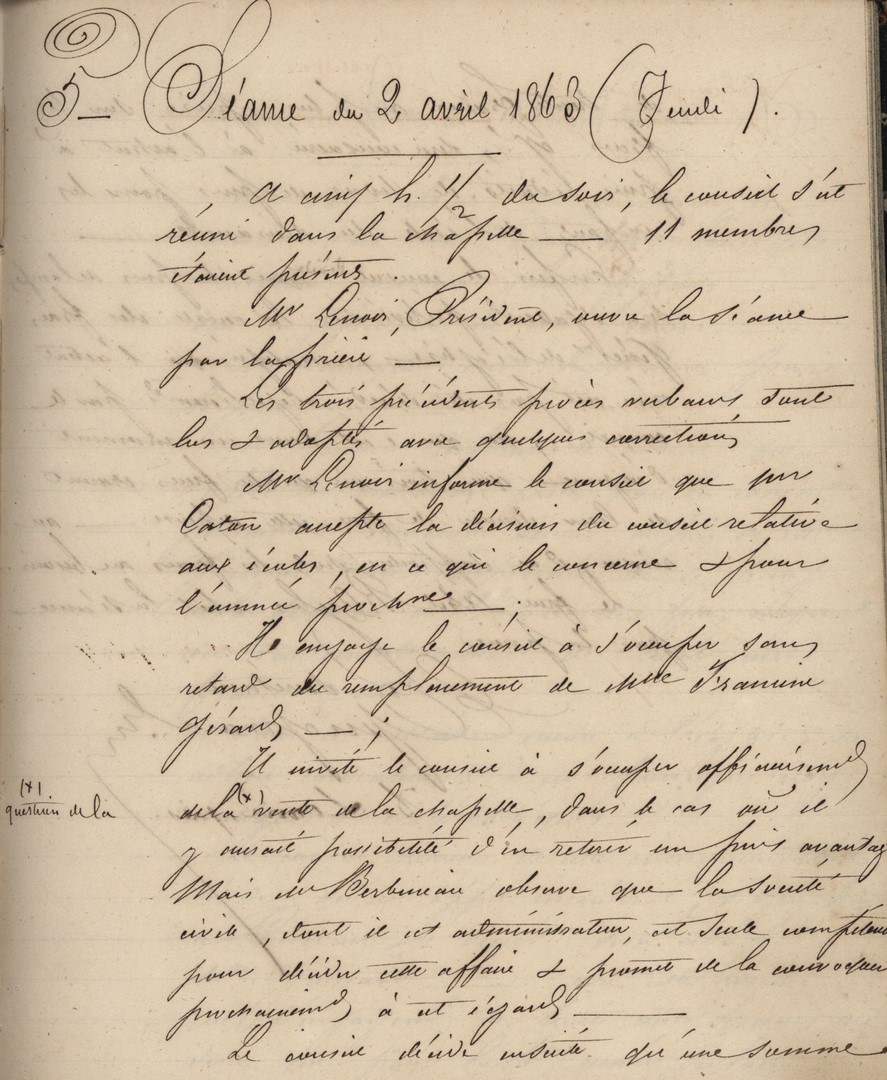 5 — Séance du 2 avril 1863 (Jeudi).
A cinq h. 1/2 du soir, le conseil s'est
réuni dans la chapelle — 11 membres
étaient présents.
Mr Lenoir, Président, ouvre la séance
par la prière —
Les trois précédents procès verbaux sont
lus & adoptés avec quelques corrections
Mr Lenoir informe le conseil que
Caton accepte la décision du conseil relative
aux écoles, en ce qui le concerne & pour
l'année prochne — ;
Il engage le conseil à s'occuper sans
retard du remplacement de Mlle Francine
Gérard — ;
Il invite le conseil à s'occuper officieusement
(x)
question de la
de la (x) vente de la chapelle, dans le cas où il
y aurait possibilité d'en retirer un prix avantag
Mais Mr Berbineau observe que la société
civile, dont il est administrateur, est seule compétente
pour décider cette affaire & promet de la convoquer
prochainement à cet égard —
Le conseil décide ensuite qu'une somme